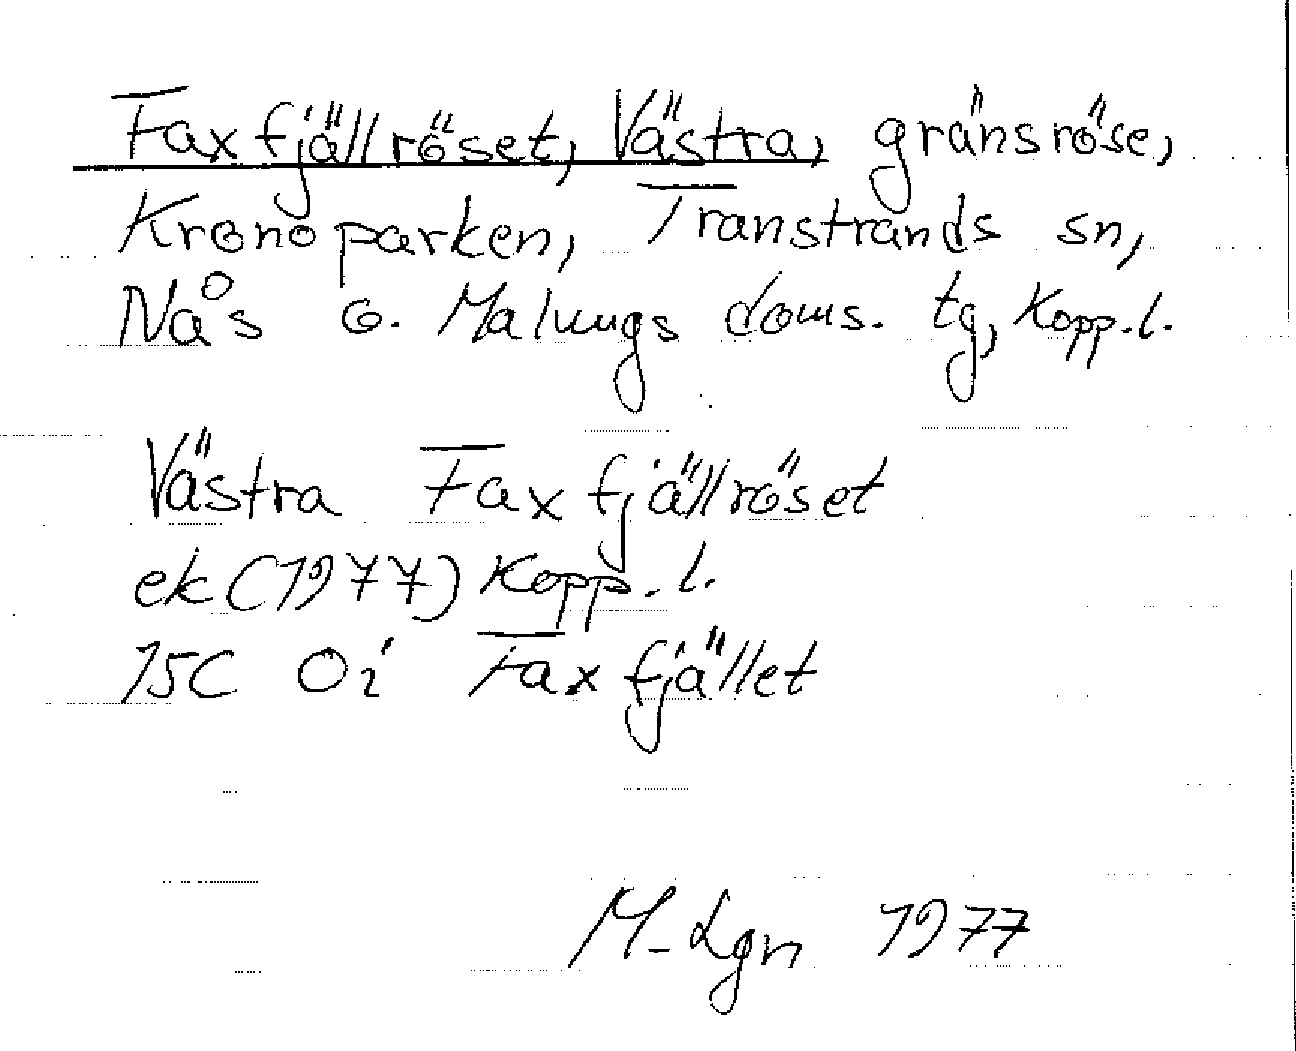 Faxfjällröset, Västra, gränsröse,
Kronoparken, Transtrands sn,
Nås o. Malungs doms. tg, Kopp. l.
Västra Faxfjällröset
ek (1977) Kopp. l.
15C 0i Faxfjället
M-Lgn 1977